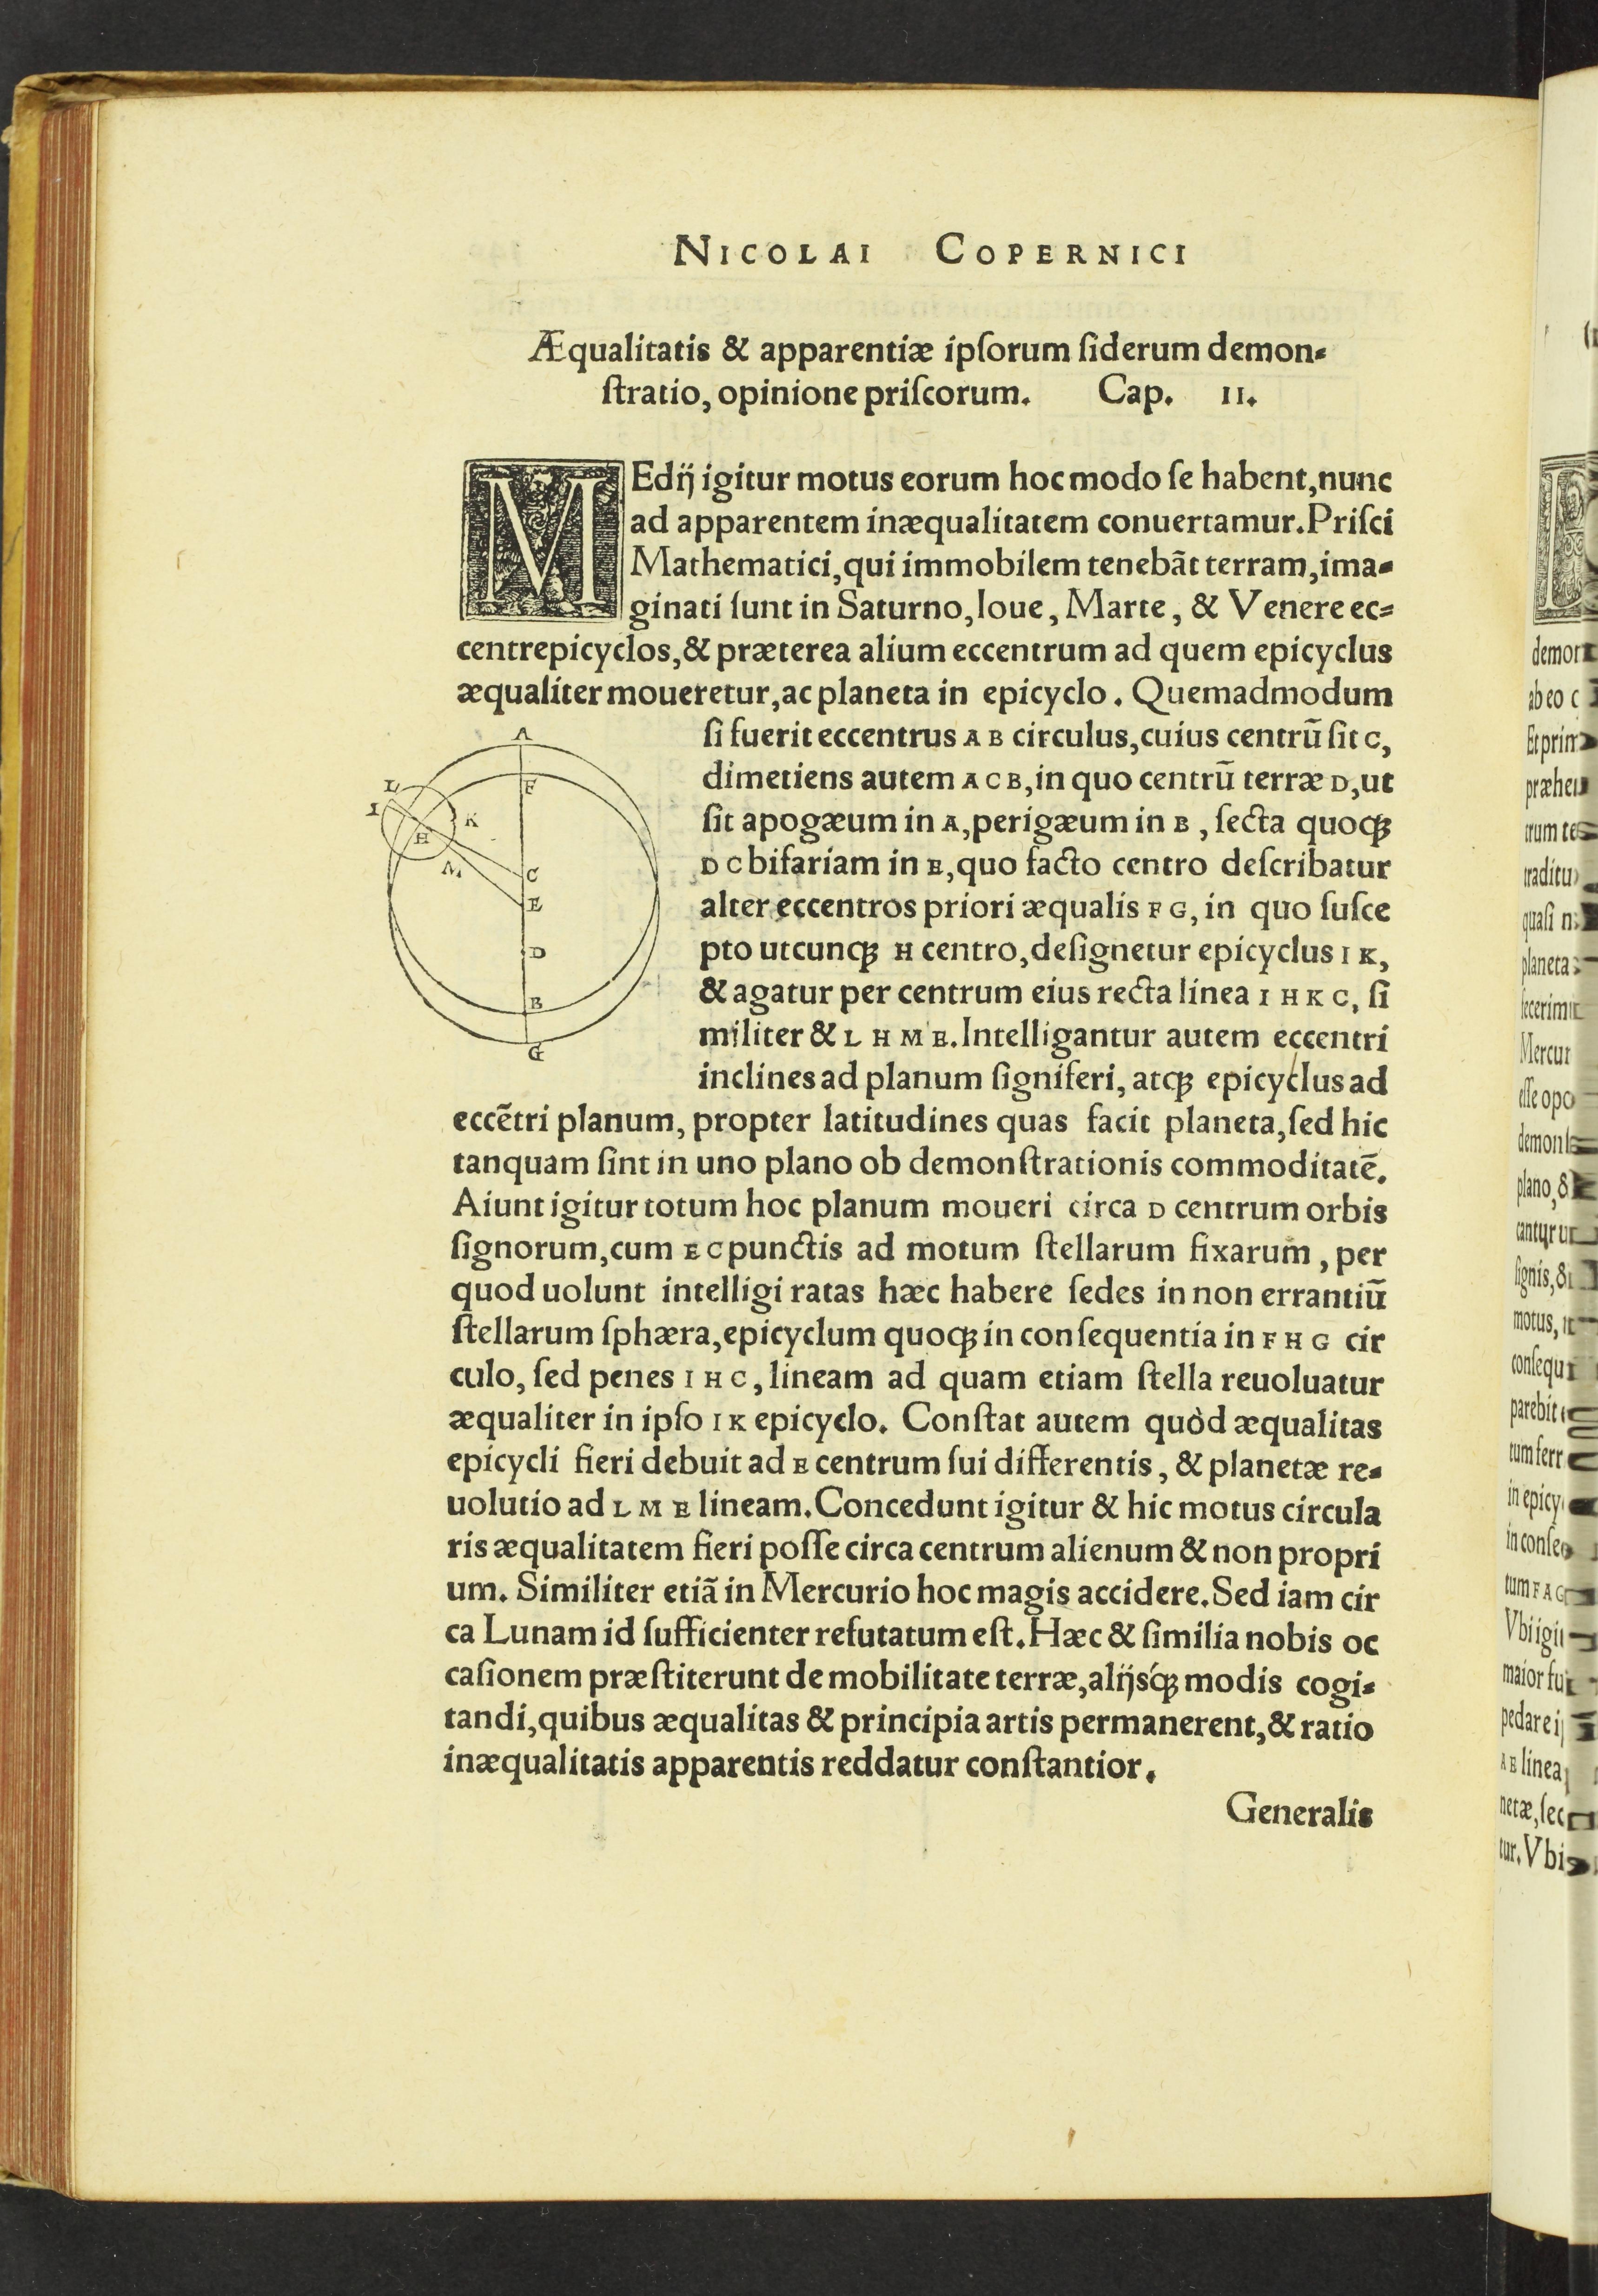 NICOLAI COPERNICI
Æqualitatis & apparentiæ ipſorum ſiderum demon⸗
ſtratio, opinione priſcorum. Cap. II.
MEdij igitur motus eorum hoc modo ſe habent, nunc
ad apparentem inæqualitatem conuertamur. Priſci
Mathematici, qui immobilem tenebāt terram, ima⸗
ginati ſunt in Saturno, Ioue, Marte, & Venere ec⸗
centrepicyclos, & præterea alium eccentrum ad quem epicyclus
æqualiter moueretur, ac planeta in epicyclo. Quemadmodum
ſi fuerit eccentrus A B circulus, cuius centrū ſit C,
dimetiens autem A C B, in quo centrū terræ D, ut
ſit apogæum in A, perigæum in B, ſecta quoqꝫ
D C bifariam in E, quo facto centro deſcribatur
alter eccentros priori æqualis F G, in quo ſuſce
pto utcunqꝫ H centro, deſignetur epicyclus I K,
& agatur per centrum eius recta linea I H K C, ſi
militer & L H M E. Intelligantur autem eccentri
inclines ad planum ſigniferi, atqꝫ epicyclus ad
eccētri planum, propter latitudines quas facit planeta, ſed hic
tanquam ſint in uno plano ob demonſtrationis commoditatē.
Aiunt igitur totum hoc planum moueri circa D centrum orbis
ſignorum, cum E C punctis ad motum ſtellarum fixarum, per
quod uolunt intelligi ratas hæc habere ſedes in non errantiū
ſtellarum ſphæra, epicyclum quoqꝫ in conſequentia in F H G cir
culo, ſed penes I H C, lineam ad quam etiam ſtella reuoluatur
æqualiter in ipſo I K epicyclo. Conſtat autem quòd æqualitas
epicycli fieri debuit ad E centrum ſui differentis, & planetæ re⸗
uolutio ad L M E lineam. Concedunt igitur & hic motus circula
ris æqualitatem fieri poſſe circa centrum alienum & non propri
um. Similiter etiā in Mercurio hoc magis accidere. Sed iam cir
ca Lunam id ſufficienter refutatum eſt. Hæc & ſimilia nobis oc
caſionem præſtiterunt de mobilitate terræ, alijsq́ꝫ modis cogi⸗
tandi, quibus æqualitas & principia artis permanerent, & ratio
inæqualitatis apparentis reddatur conſtantior.
Generalis
A
F
L
I
K
H
M
C
E
D
B
G